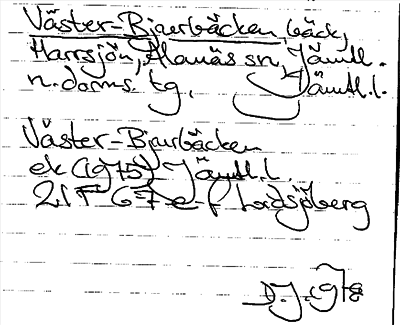 Väster-Bjurbäcken, bäck,
Harrsjön, Alanäs sn, Jämtl.
n. darms. tg. Jämtl.l.
Väster-Bjurbäcken
ek (1975) Jämtl.l.
21F 67 e-f Lidsjöberg
D.J. 1978